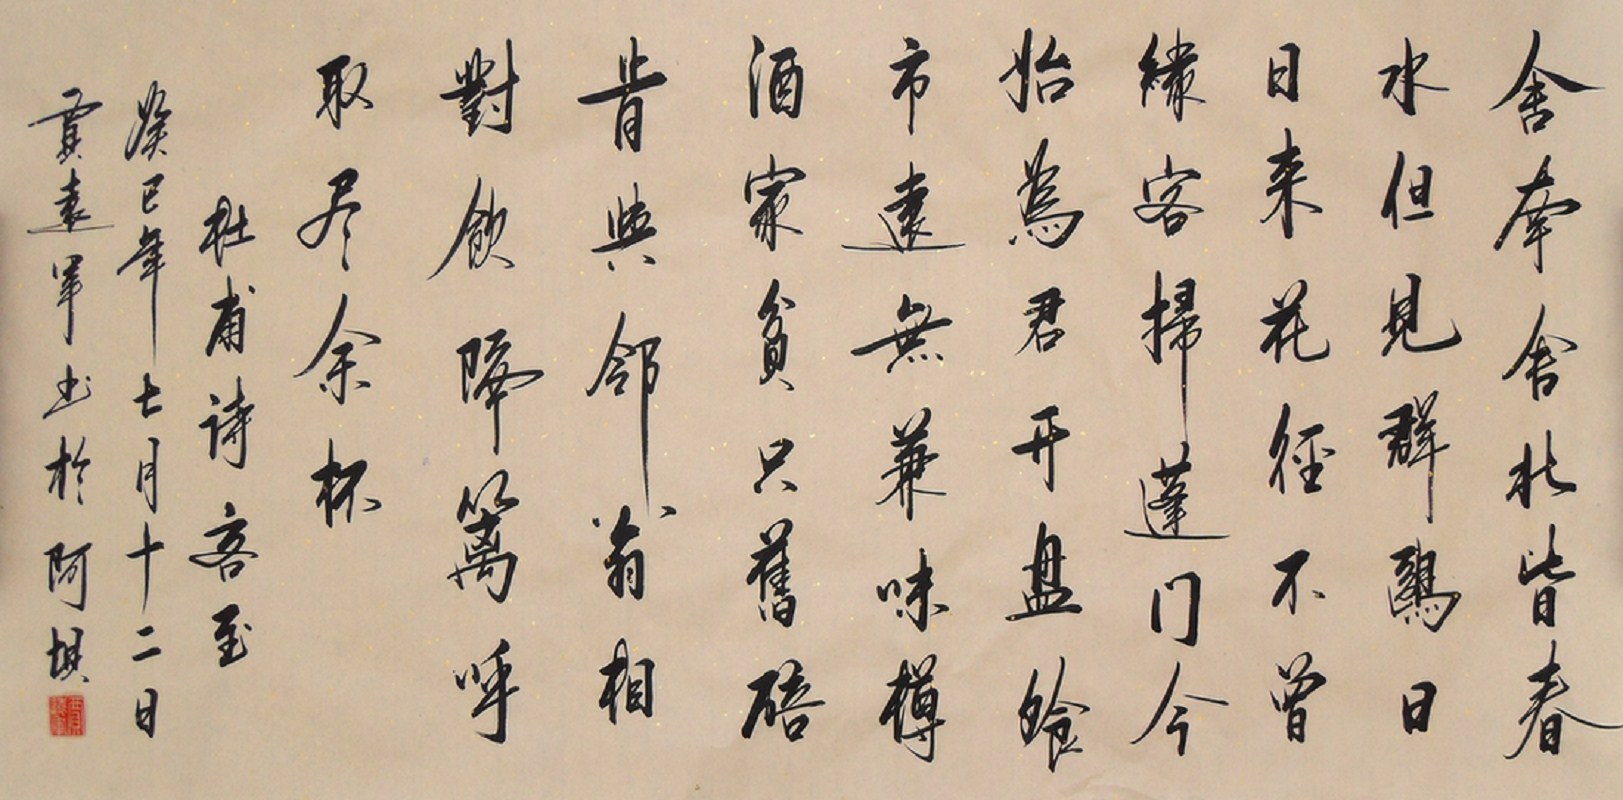 舍南舍北皆春
水但見群鷗日
日来花徑不曾
緣客掃蓬门今
始為君开盘飧
市遠無兼味樽
酒家貧只舊醅
肯與邻翁相
對飲隔篱呼
取尽余杯
杜甫诗客至
癸巳年七月十二日
賈遠軍书於阿垻